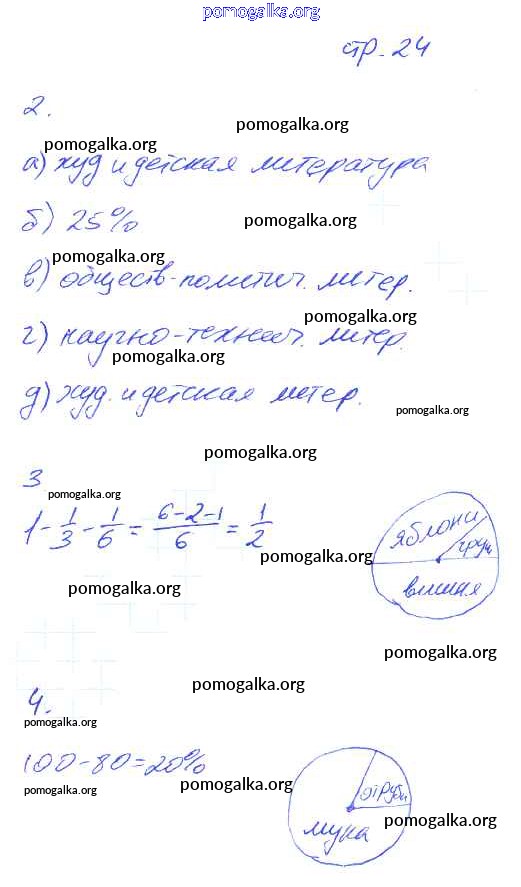 pomogalka.org
стр. 24
2.
pomogalka.org
pomogalka.org
а) худ и детская литература
б) 25%
pomogalka.org
pomogalka.org
в) обществ-политич. литер.
pomogalka.org
г) научно-технич. литер.
pomogalka.org
д) худ. и детская литер.
pomogalka.org
pomogalka.org
3
pomogalka.org
1 - 1/3 - 1/6 = (6-2-1)/6 = 1/2
яблони
груш
вишня
pomogalka.org
pomogalka.org
pomogalka.org
pomogalka.org
4.
pomogalka.org
100-80=20%
pomogalka.org
pomogalka.org
отруби
мука
pomogalka.org
pomogalka.org